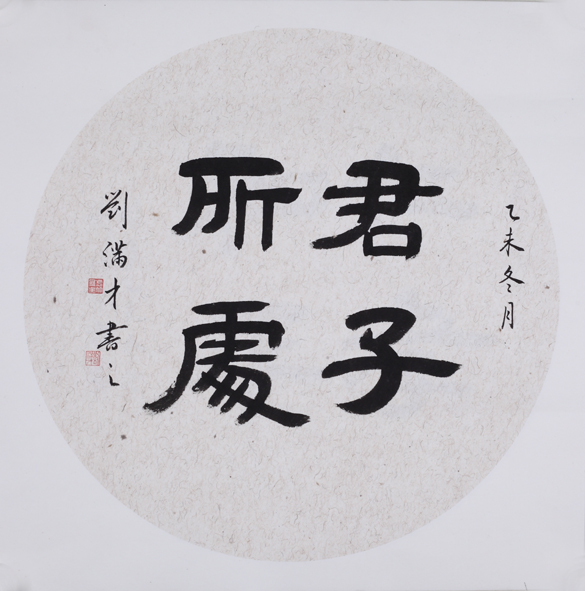 乙未冬月
君子
所處
劉滿才書之